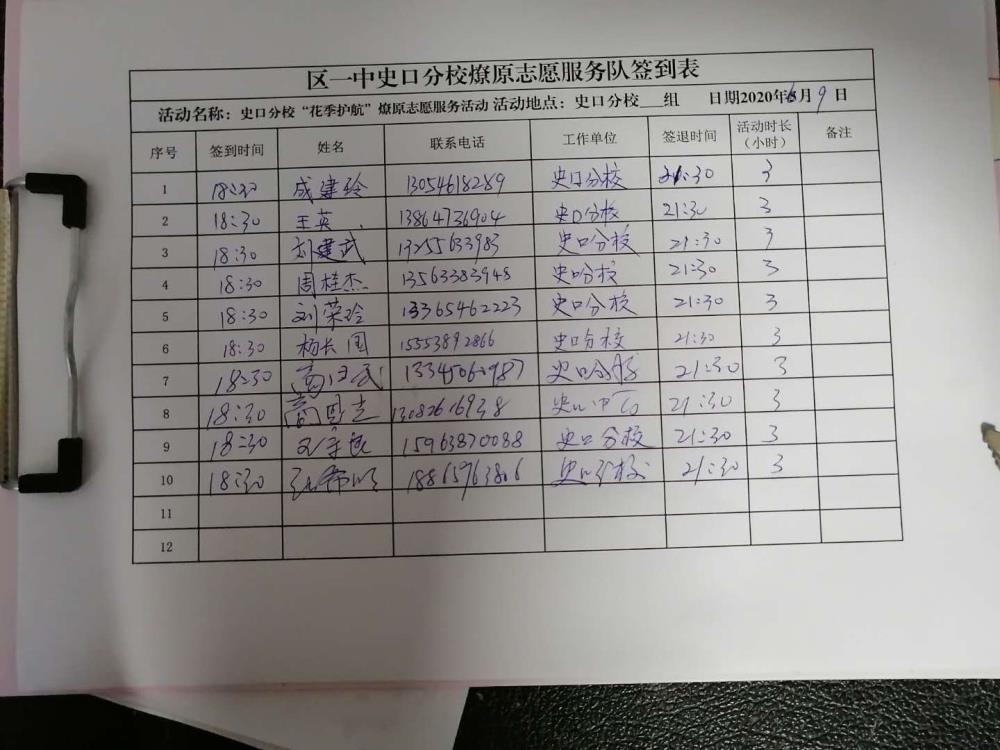 区一中史口分校燎原志愿服务队签到表
活动名称：史口分校“花季护航”燎原志愿服务活动 活动地点：史口分校___组 日期2020年6月9日
序号 签到时间 姓名 联系电话 工作单位 签退时间 活动时长（小时） 备注
1 18:30 成建玲 13054618289 史口分校 21:30 3
2 18:30 王英 13864736904 史口分校 21:30 3
3 18:30 刘建武 13255633983 史口分校 21:30 3
4 18:30 周桂杰 13563383948 史口分校 21:30 3
5 18:30 刘荣玲 13365462223 史口分校 21:30 3
6 18:30 杨长国 15553892866 史口分校 21:30 3
7 18:30 13345060987 史口分校 21:30 3
8 18:30 21:30 3
9 18:30 15963870088 史口分校 21:30 3
10 18:30 18865763806 史口分校 21:30 3
11
12